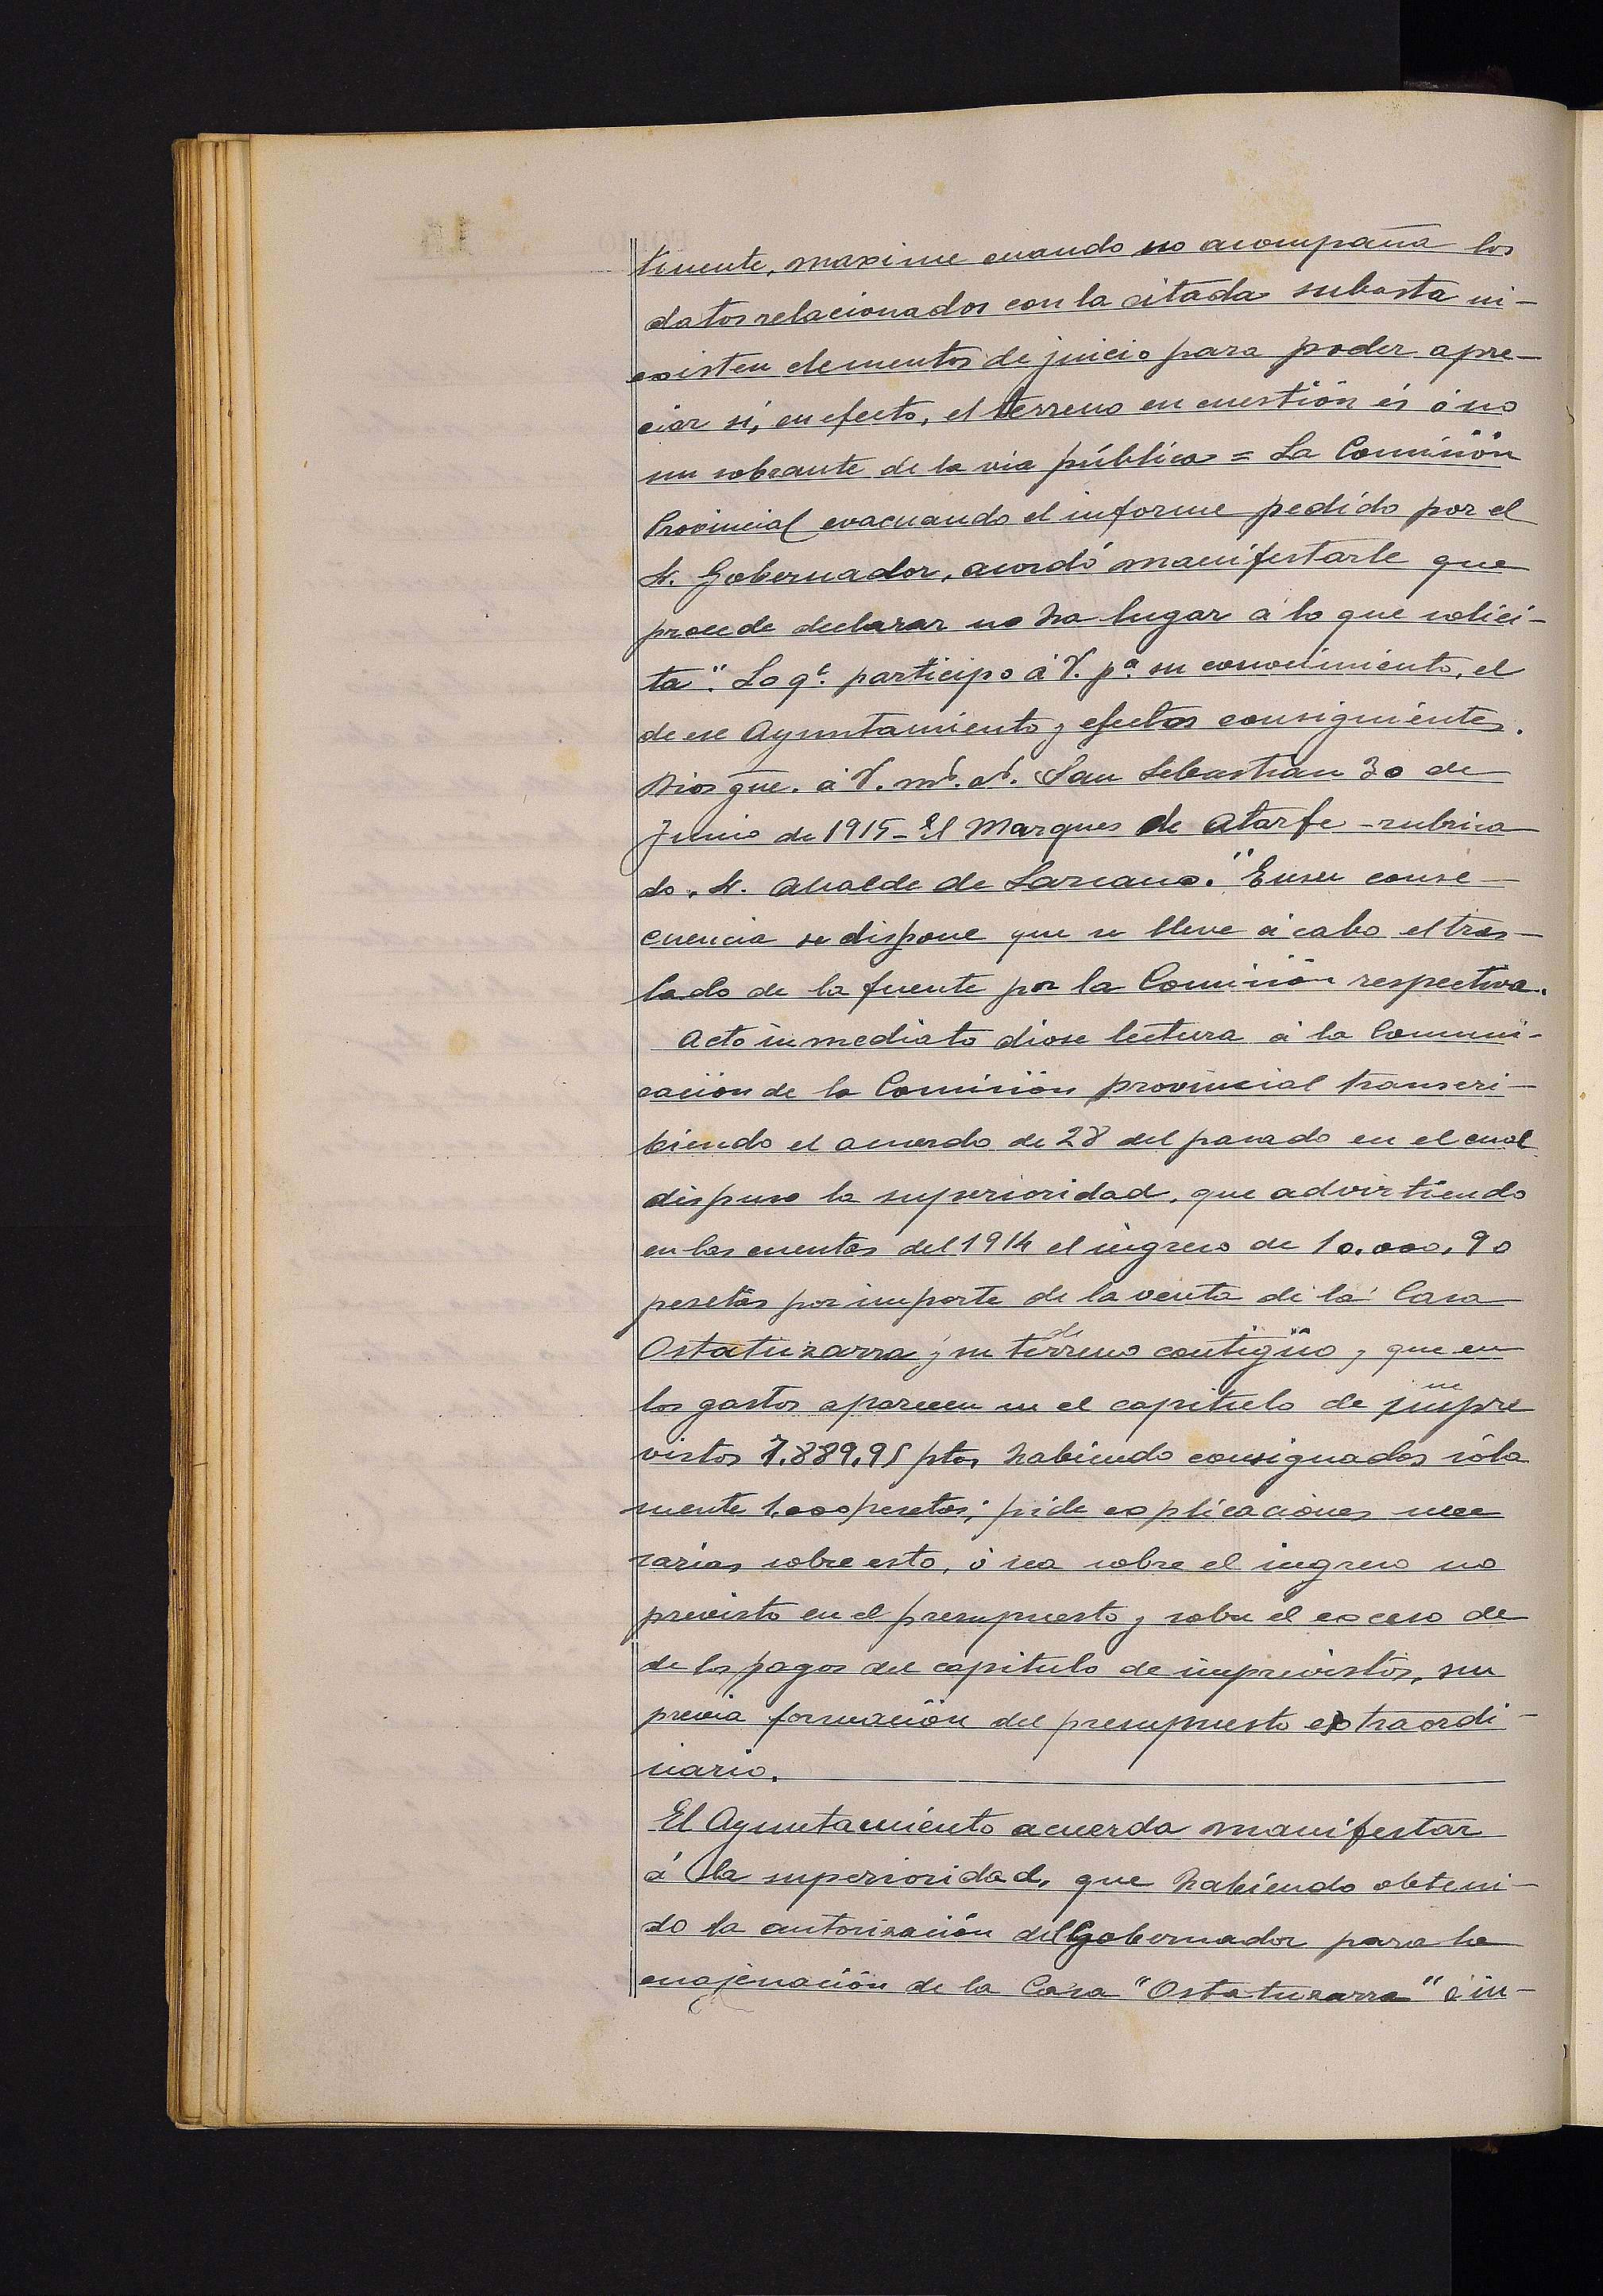 tinente, maxime cuando no acompaña los
datos relacionados con la citada subasta ni-
existen elementos de juicio para poder apre-
ciar si, en efecto, el terreno en cuestión és ó no
un sobrante de la via pública = La Comisión
Provincial evacuando el informe pedido por el
Sr. Gobernador, acordó manifestarle que
procede declarar no ha lugar á lo que solici-
ta". Lo qe. participo á V. pa. su conocimiento, el
de ese Ayuntamiento y efectos consiguientes.
Dios gue. á V. ms. as. San Sebastian 30 de
Junio de 1915 - El Marques de Atarfe - rubrica
do. Sr. Alcalde de Lazcano." En su conse-
cuencia se dispone que se lleve á cabo el tras-
lado de la fuente por la Comisión respectiva.
Acto inmediato diose lectura á la Comuni-
cación de la Comisión provincial transcri-
biendo el acuerdo de 28 del pasado en el cual
dispuso la superioridad, que advirtiendo
en las cuentas del 1914 el ingreso de 10.000,90
pesetas por importe de la venta de la Casa
Ostatuzarra y su terreno contigüo, y que en
los gastos aparecen en el capitulo de impre
vistos 7.889,95 ptas, habiendo consignados sola
mente 1.000 pesetas; pide explicaciones nece
sarias sobre esto, ó sea sobre el ingreso no
previsto en el presupuesto y sobre el exceso de
de los pagos del capitulo de imprevistos, sin
previa formación del presupuesto extraordi-
nario.
El Ayuntamiento acuerda manifestar
á la superioridad, que habiendo obteni-
do la autorización del Gobernador para la
enajenación de la Casa "Ostatuzarra" é in-